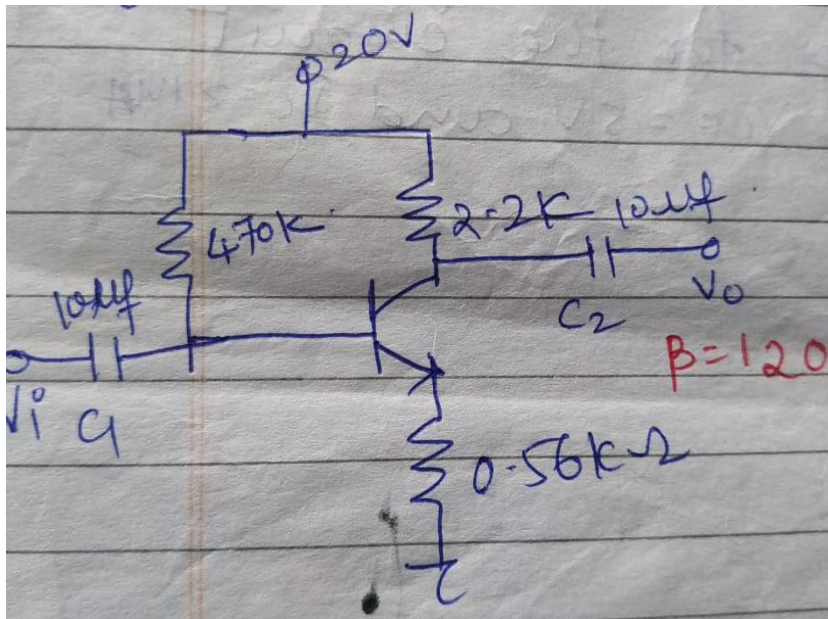 20V
470K
2.2K
10μf
10μf
C2
Vo
β=120
Vi
C1
0.56KΩ